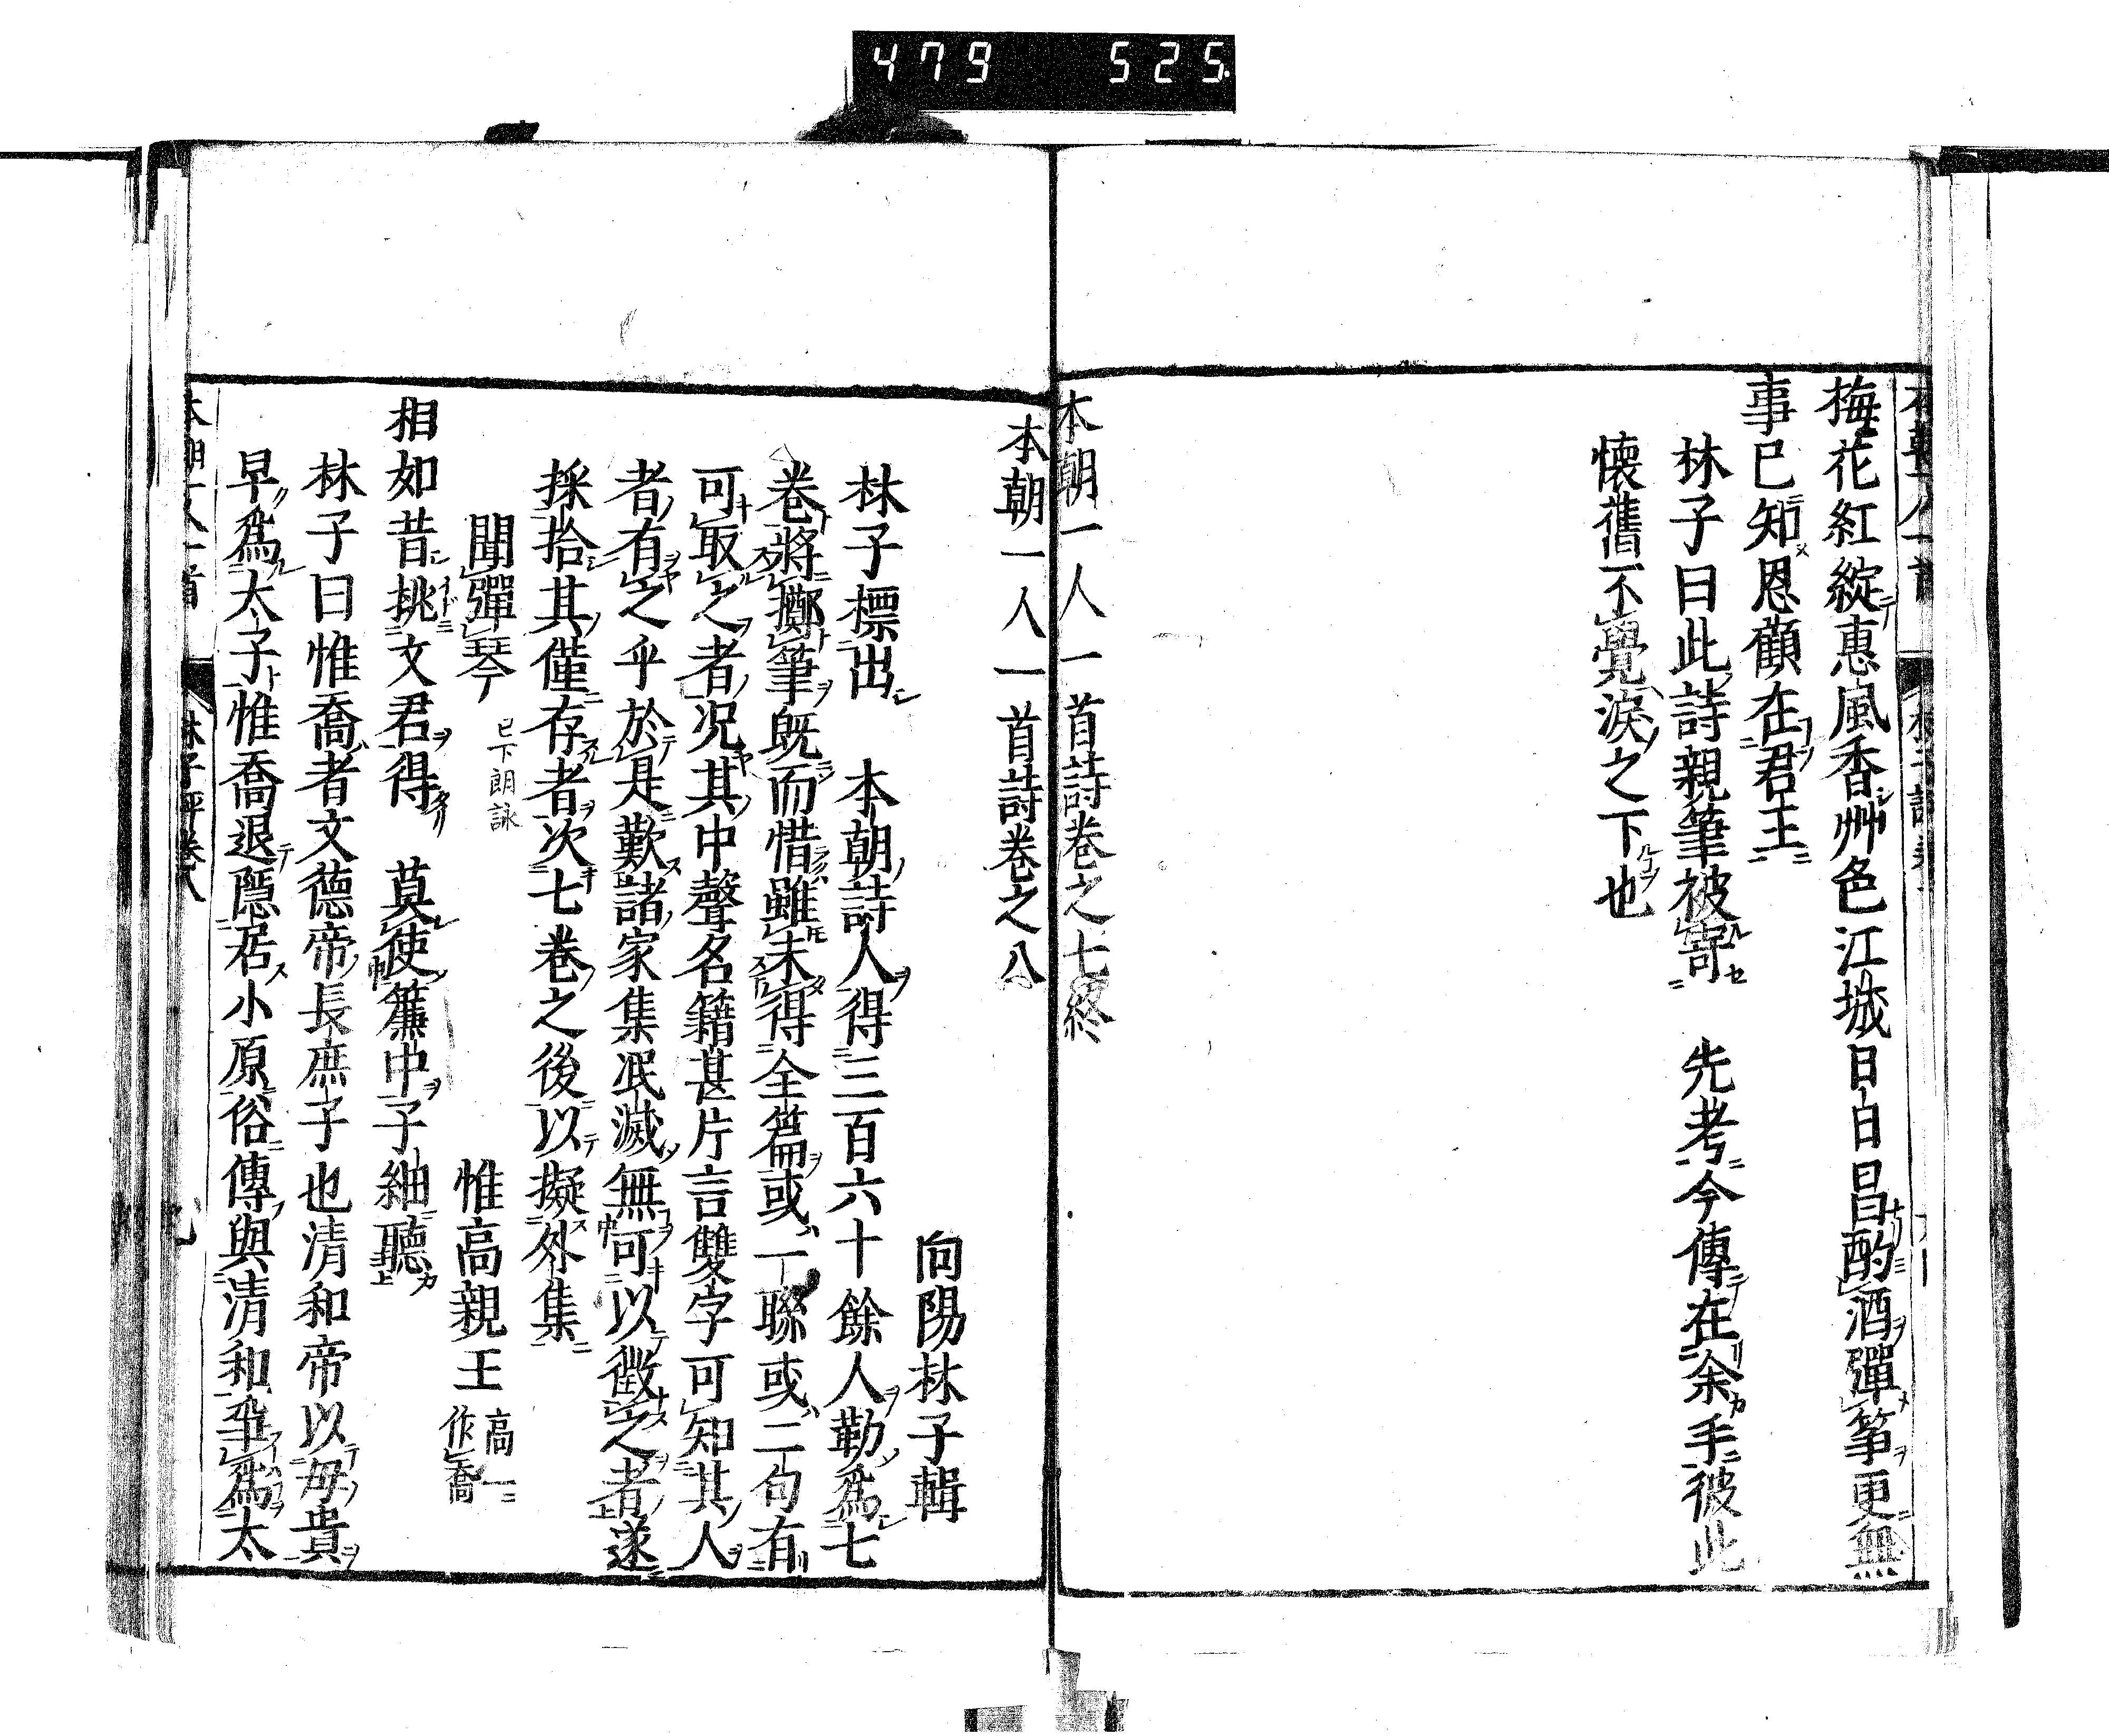 479 525
梅花紅綻惠風香艸色江城日日昌酌酒彈箏更無
事已知恩顧在君王
林子曰此詩親筆被寄 先考今傳在余手彼此
懷舊不覺淚之下也
本朝一人一首詩卷之七終
本朝一人一首詩卷之八
向陽林子輯
林子標出 本朝詩人得三百六十餘人勒為七
卷將擲筆既而惜雖未得全篇或一聯或二句有
可取之者況其中聲名籍甚片言雙字可知其人
者有之乎於是歎諸家集泯滅無可以徵之者遂
採拾其僅存者次七卷之後以擬外集
聞彈琴 已下朗詠 惟高親王 高一作喬
相如昔挑文君得 莫使簾中子細聽
林子曰惟喬者文德帝長庶子也清和帝以母貴
早為太子惟喬退隱居小原俗傳與清和爭為太